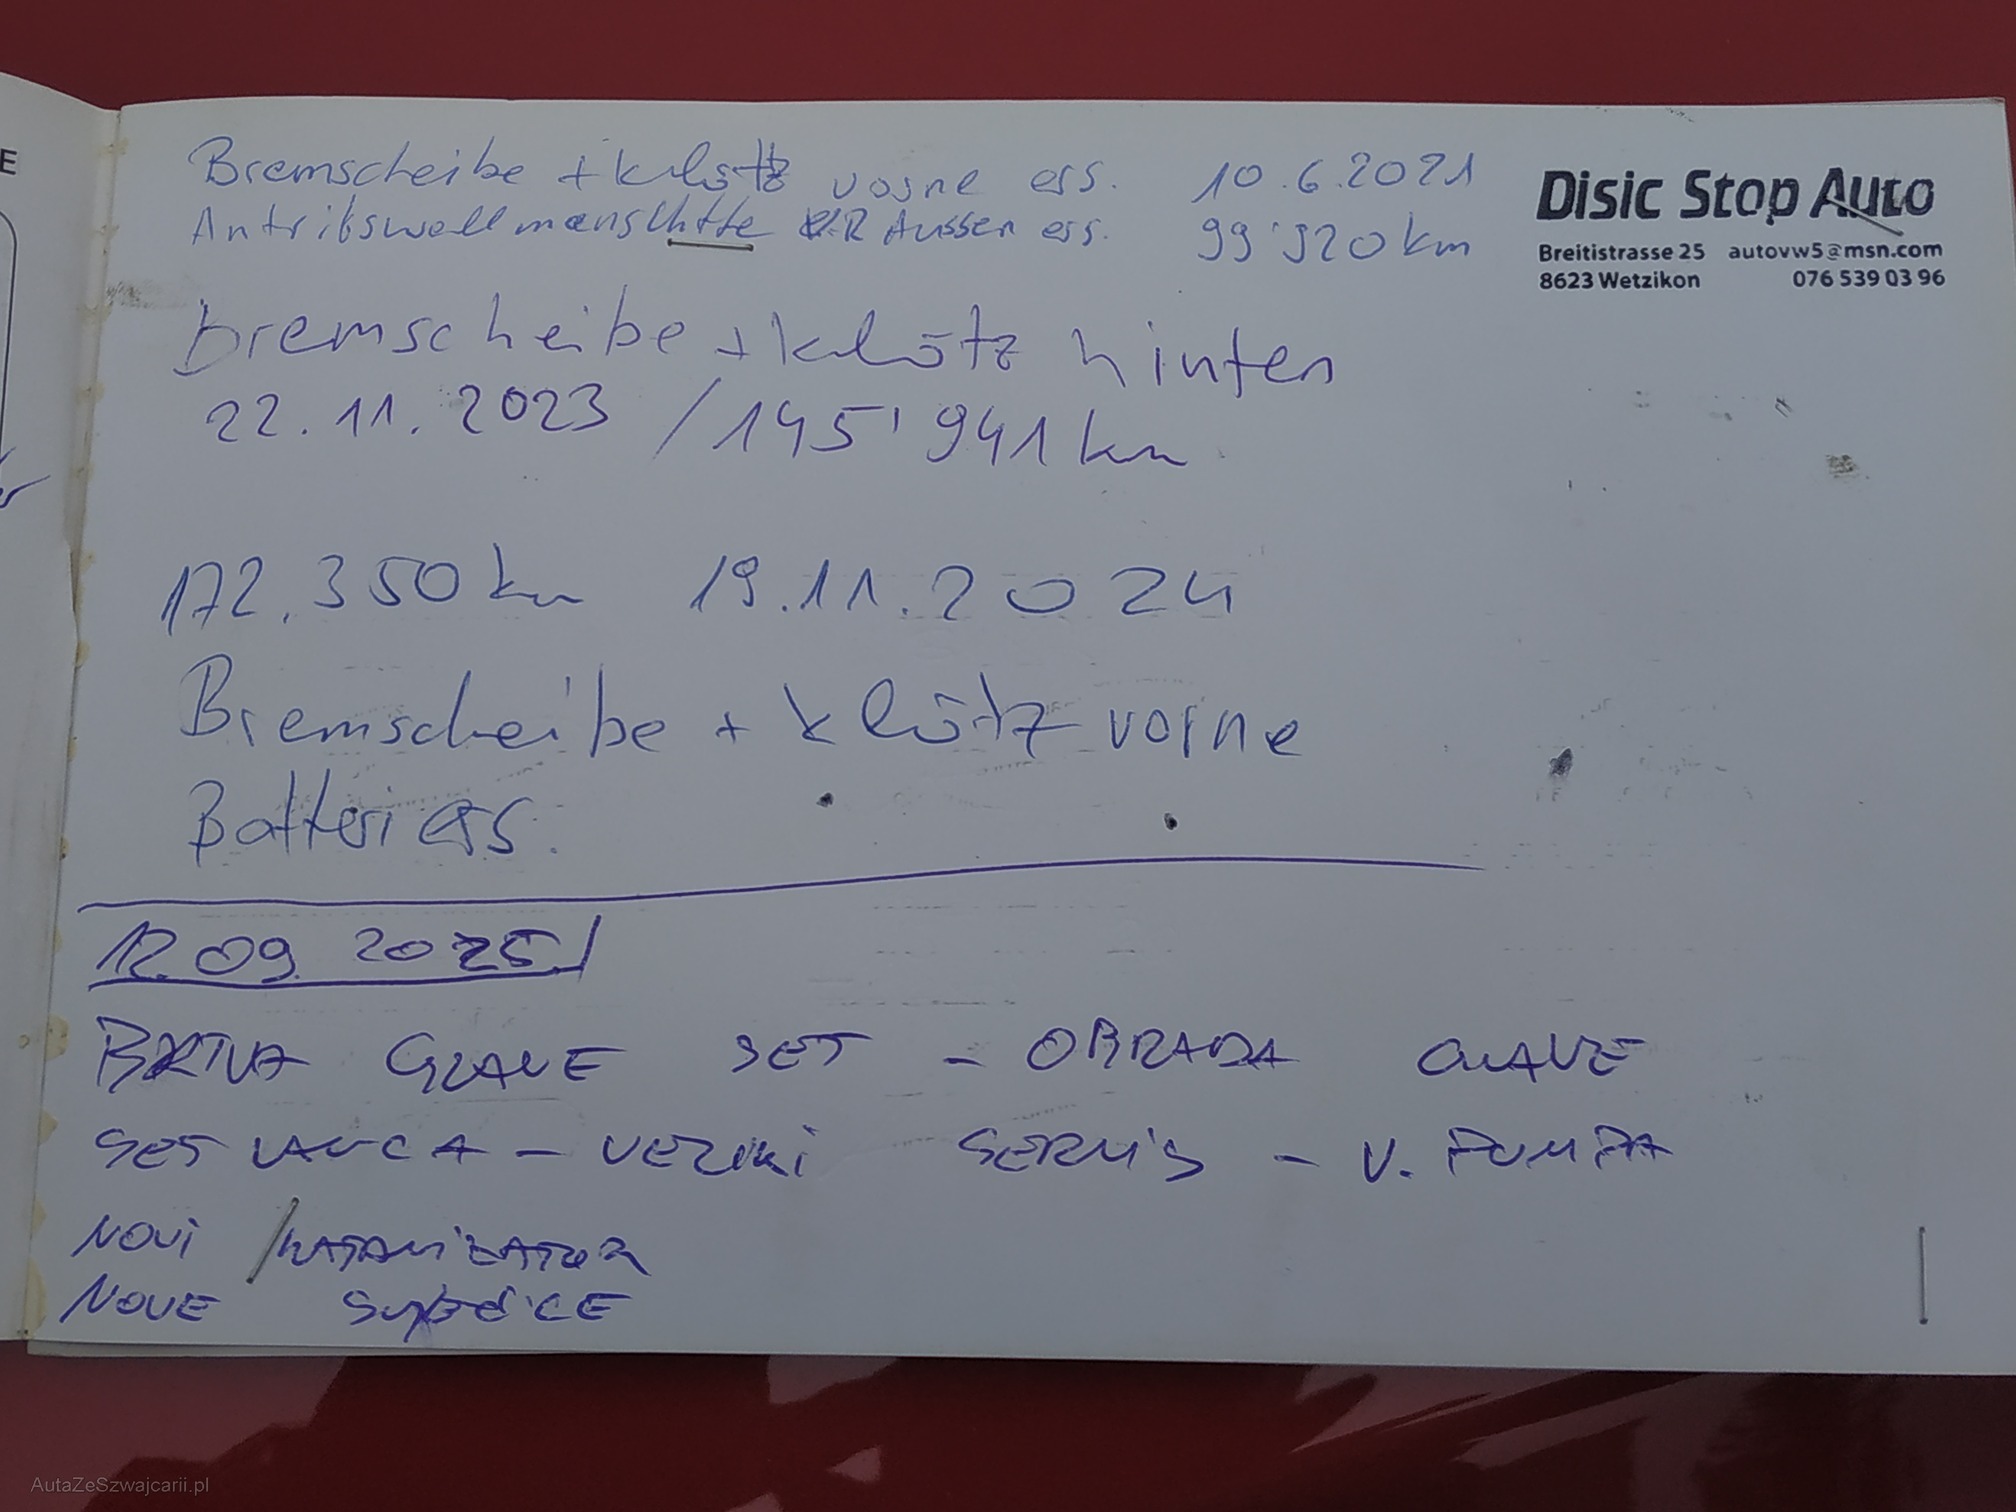 E
Bremscheibe + klötz vorne ers. 10.6.2021
Antribswellmanschtte R Aussen ers. 99'920 km
Disic Stop Auto
Breitistrasse 25 autovw5@msn.com
8623 Wetzikon 076 539 03 96
Bremscheibe + klötz hinten
22.11.2023 / 145'941 km
172.350 km 19.11.2024
Bremscheibe + klötz vorne
Batteri ers.
12.09.2025
GLAVE SET - OBRADA GLAVE
SET LANCA - VELIKI SERVIS - V. PUMPA
NOVI KATALIZATOR
NOVE
AutaZeSzwajcarii.pl